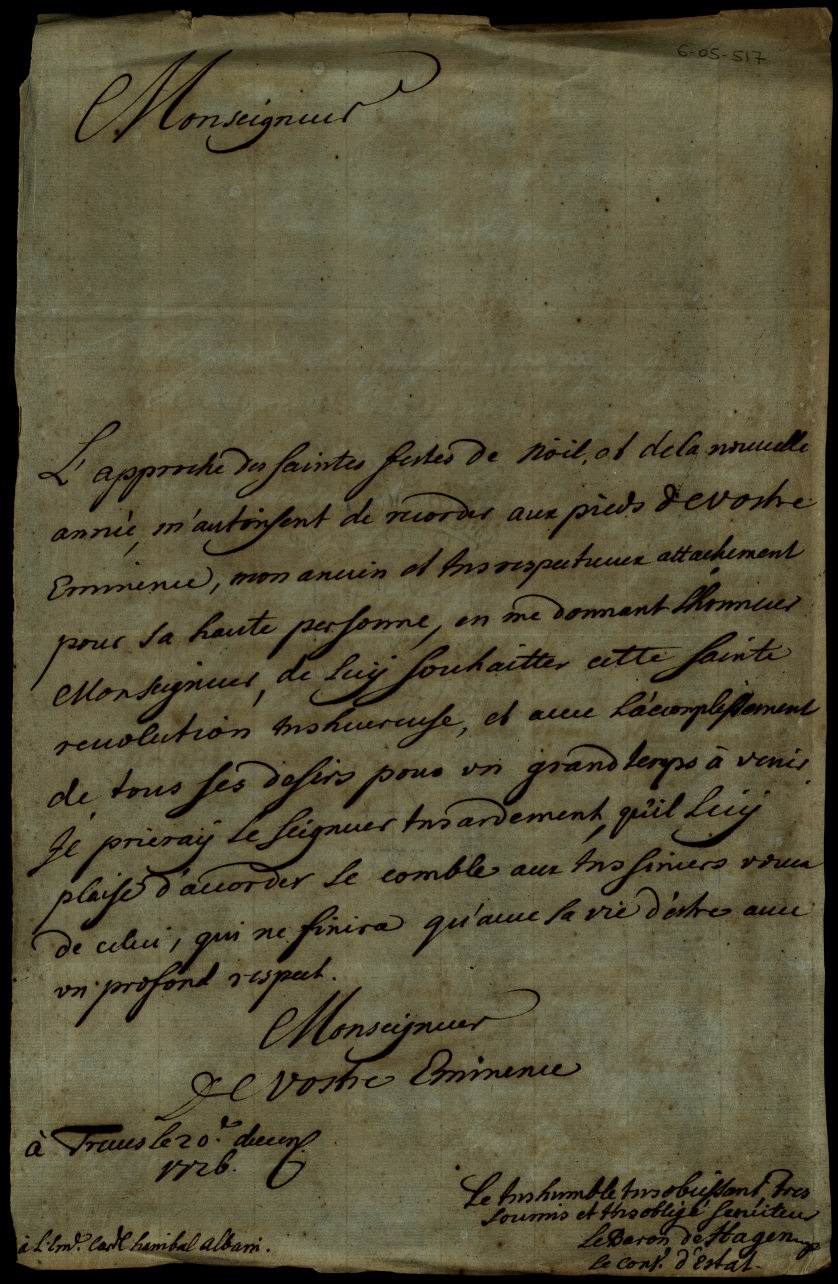 6-05-517
Monseigneur
L'approche des saintes festes de Nöil, et de la nouuelle
anneé, m'autorisent de recorder aux pieds de vostre
Eminence, mon ancien et tres respectueux attachement
pour sa haute personne, en me donnant l'honneur
Monseigneur, de luÿ souhaitter cette sainte
reuolution tres heureuse, et auec l'acomplissement
de tous ses desirs pour un grand temps à venir
Je prieraÿ le seigneur tres ardement, qu'il luÿ
plaise d'accorder le comble aux tres sinceres voeux
de celui, qui ne finira qu'auec sa vie d'estre auec
un profond respect.
Monseigneur
De vostre Eminence
à Treues le 20.e decem
1726.
Le tres humble tres obeissant, tres
soumis et tres obligé seruiteur
Le Baron de Hagen
le cons.r d'estat
à L'Em.e Card.l hanibal albani.